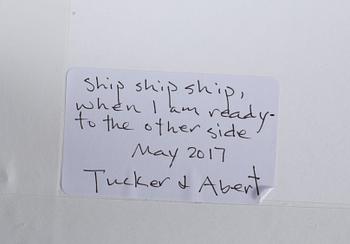 ship ship ship,
when I am ready-
to the other side
May 2017
Tucker & Abert